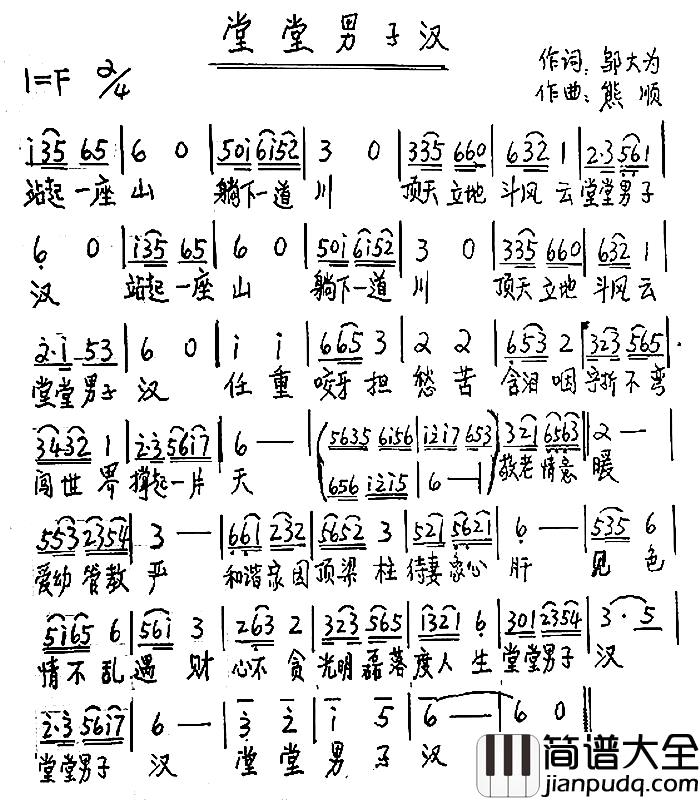 堂堂男子汉
1=F 2/4
作词:邬大为
作曲:熊顺
i35 65 | 6 0 | 50i 6i52 | 3 0 | 335 660 | 632 1 | 2·3 561 |
站起一座山 躺下一道川 顶天立地 斗风云 堂堂男子
6 0 | i35 65 | 6 0 | 50i 6i52 | 3 0 | 335 660 | 632 1 |
汉 站起一座山 躺下一道川 顶天立地 斗风云
2·i 53 | 6 0 | i i | 665 3 | 2 2 | 653 2 | 323 565 |
堂堂男子汉 任重咬牙担 愁苦含泪咽 宁折不弯
3432 1 | 2·3 56i7 | 6 — | (5635 6i56 | i2i7 653 | 321 6563 || 2 —
656 i2i5 | 6 — )
闯世界 撑起一片天 敬老情意暖
553 2354 | 3 — | 661 232 | 5652 3 | 521 5621 | 6 — | 535 6
爱幼管教严 和谐家园顶梁柱 待妻家心肝 见色
5i65 6 | 56i 3 | 263 2 | 323 565 | 1321 6 | 301 2354 | 3 · 5
情不乱 遇财心不贪 光明磊落度人生 堂堂男子汉
2·3 56i7 | 6 — | 3 2 | i 5 | 6 — | 6 0 ||
堂堂男子汉 堂堂男子汉
简谱大全
jianpudq.com